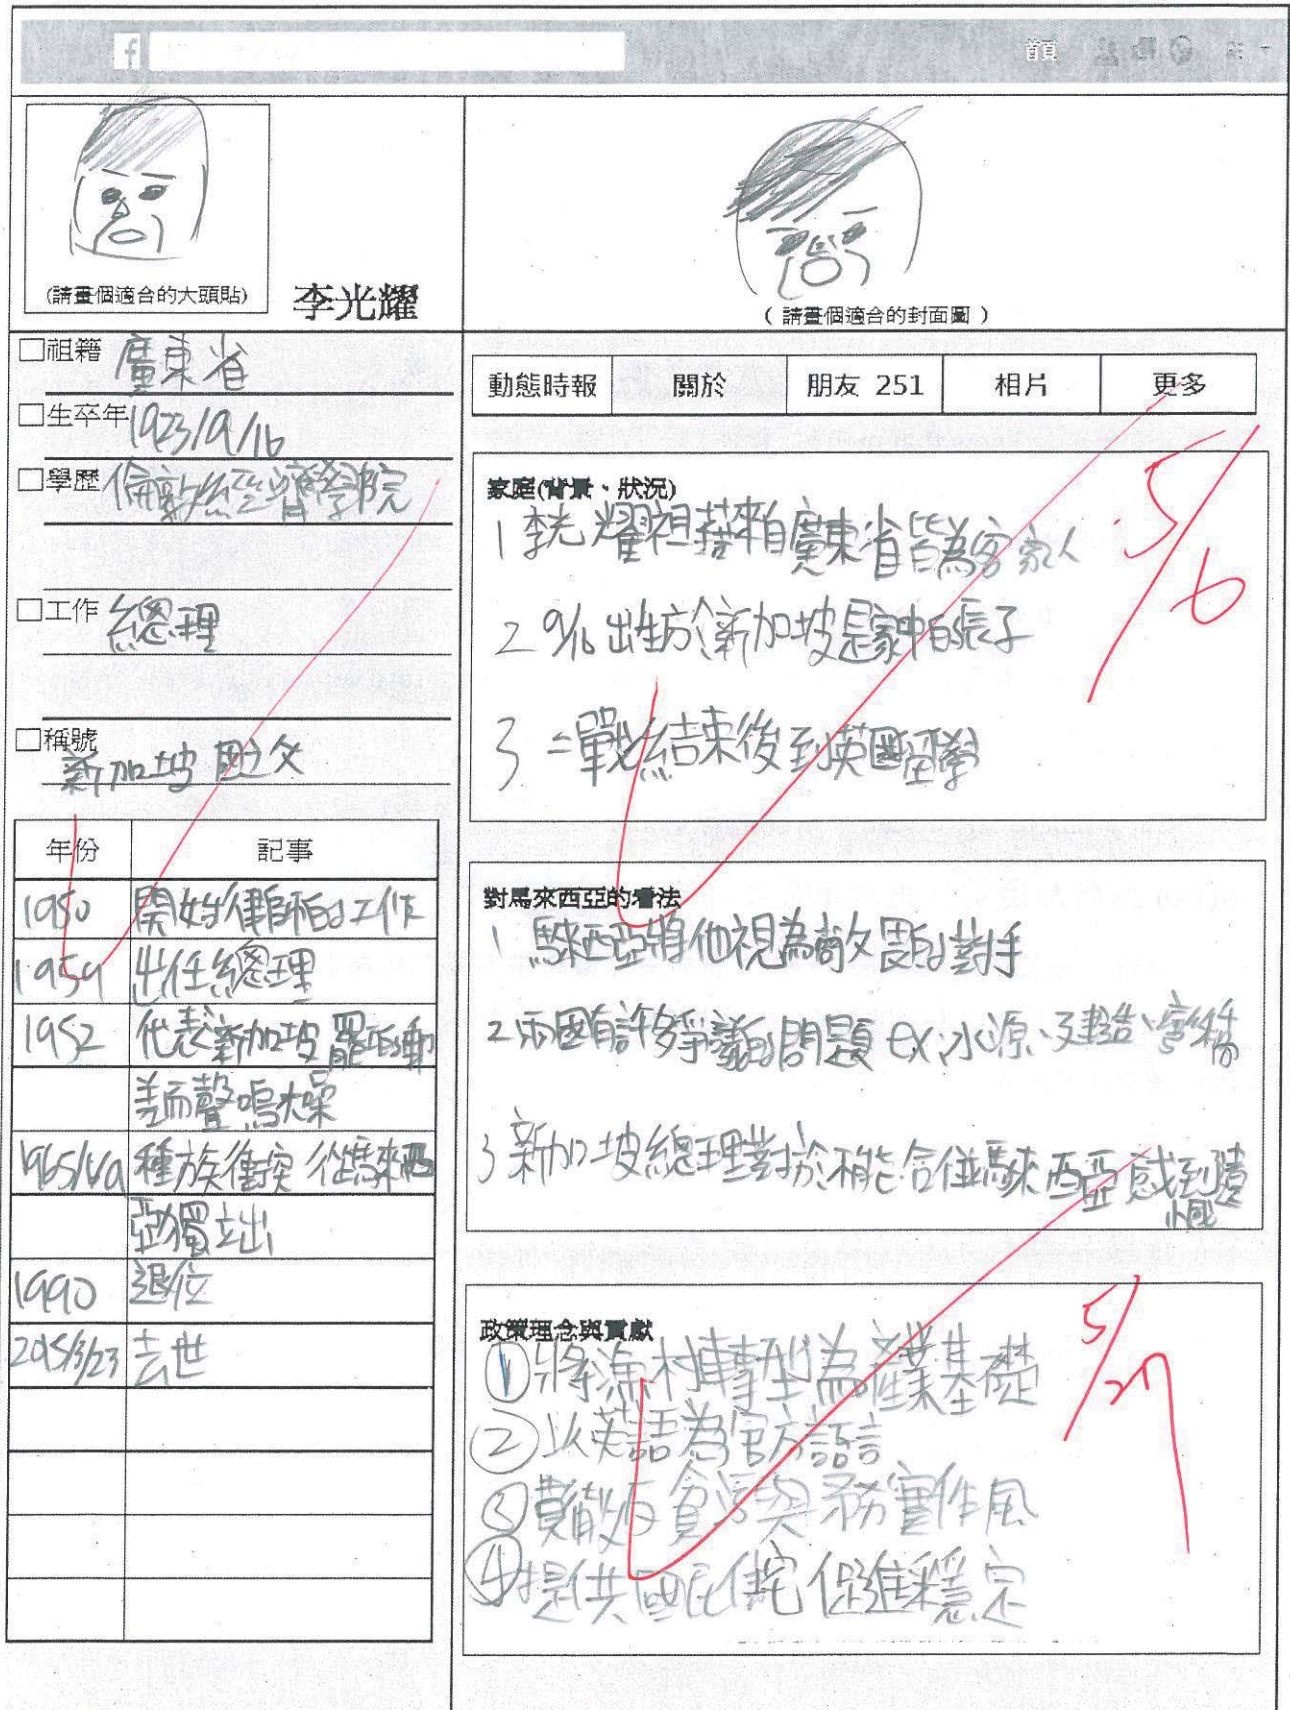 f
首頁
(請畫個適合的大頭貼)
李光耀
( 請畫個適合的封面圖 )
□祖籍 廣東省
□生卒年 1923/9/16
□學歷 倫敦經濟學院
□工作 總理
□稱號
新加坡 國之父
年份 記事
1950 開始律師的工作
1959 出任總理
1952 代表新加坡罷的動
差而聲鳴大噪
1965/8/9 種族衝突 從馬來西
亞獨立出
1990 退位
2015/3/23 去世
動態時報 關於 朋友 251 相片 更多
家庭(背景、狀況)
1 李光耀祖藉來自廣東省皆為客家人
2 9/16 出生於新加坡是家中的長子
3 二戰結束後到英國留學
5/6
對馬來西亞的看法
1 馬來西亞將他視為敵畏的對手
2 兩國有許多爭議的問題 ex 水源、建造彎橋
3 新加坡總理對於不能合併馬來西亞感到遺
憾
政策理念與貢獻
① 將漁村轉型為產業基礎
② 以英語為官方語言
③ 反貪污與務實作風
④ 提供國民住宅 促進穩定
5/27